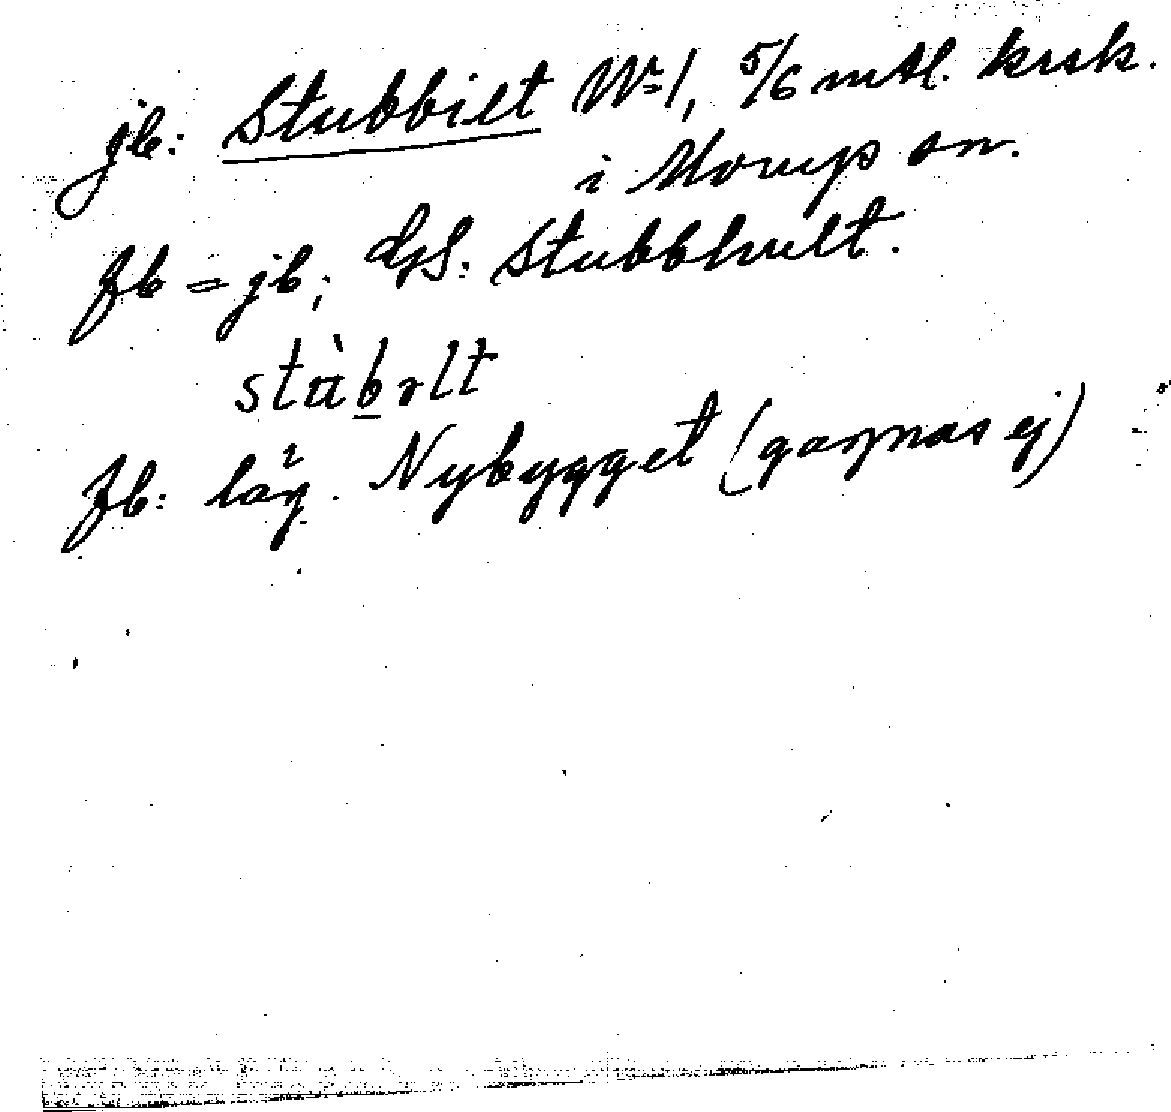 jb: Stubbilt No 1, 5/6 mtl. krsk.
i Morups sn.
fb = jb; dfs: Stubbhult.
stùbɐlt
fb: läg. Nybygget (gagnas ej)